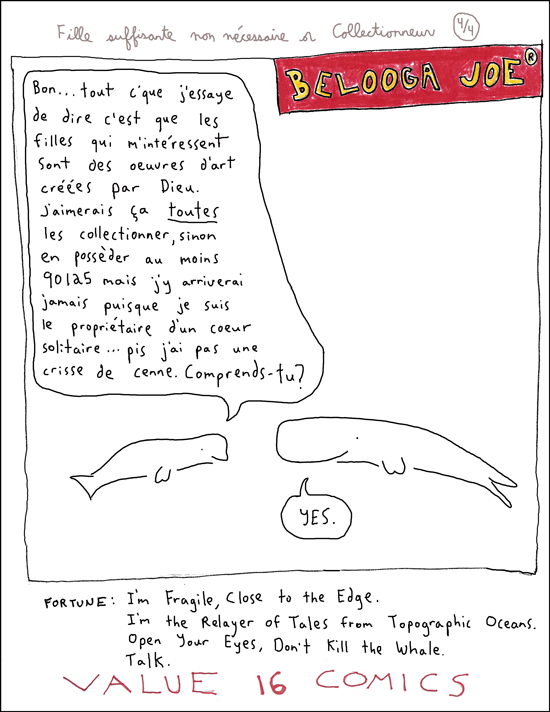 Fille suffisante non nécessaire or Collectionneur 4/4
BELOOGA JOE®
Bon... tout c'que j'essaye
de dire c'est que les
filles qui m'intéressent
sont des oeuvres d'art
créées par Dieu.
J'aimerais ça toutes
les collectionner, sinon
en possèder au moins
90125 mais j'y arriverai
jamais puisque je suis
le propriétaire d'un coeur
solitaire... pis j'ai pas une
crisse de cenne. Comprends-tu?
YES.
FORTUNE: I'm Fragile, Close to the Edge.
I'm the Relayer of Tales from Topographic Oceans.
Open Your Eyes, Don't Kill the Whale.
Talk.
VALUE 16 COMICS